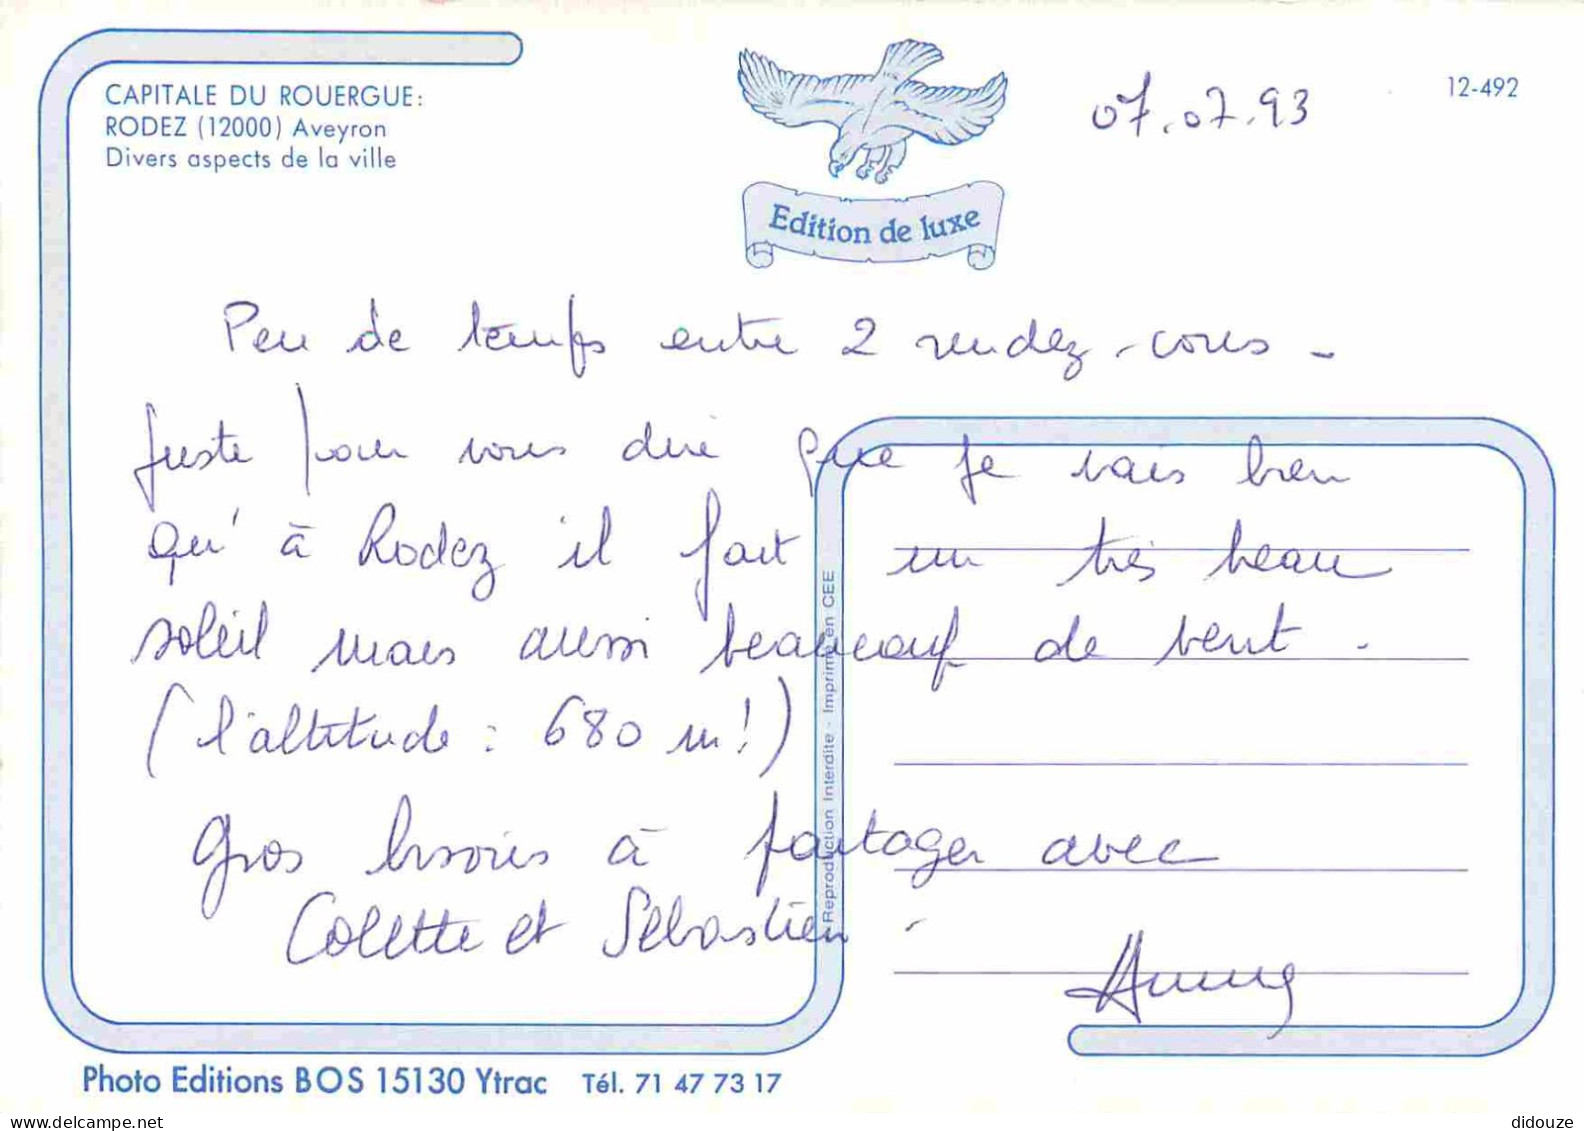 CAPITALE DU ROUERGUE:
RODEZ (12000) Aveyron
Divers aspects de la ville
Edition de luxe
07.07.93
12-492
Peu de temps entre 2 rendez-vous -
Juste pour vous dire que je vais bien
qu'à Rodez il fait un très beau
soleil mais aussi beaucoup de vent.
(l'altitude : 680 m!)
Gros bisous à partager avec
Colette et Sébastien.
Reproduction Interdite - Imprimé en CEE
Photo Editions BOS 15130 Ytrac Tél. 71 47 73 17
didouze